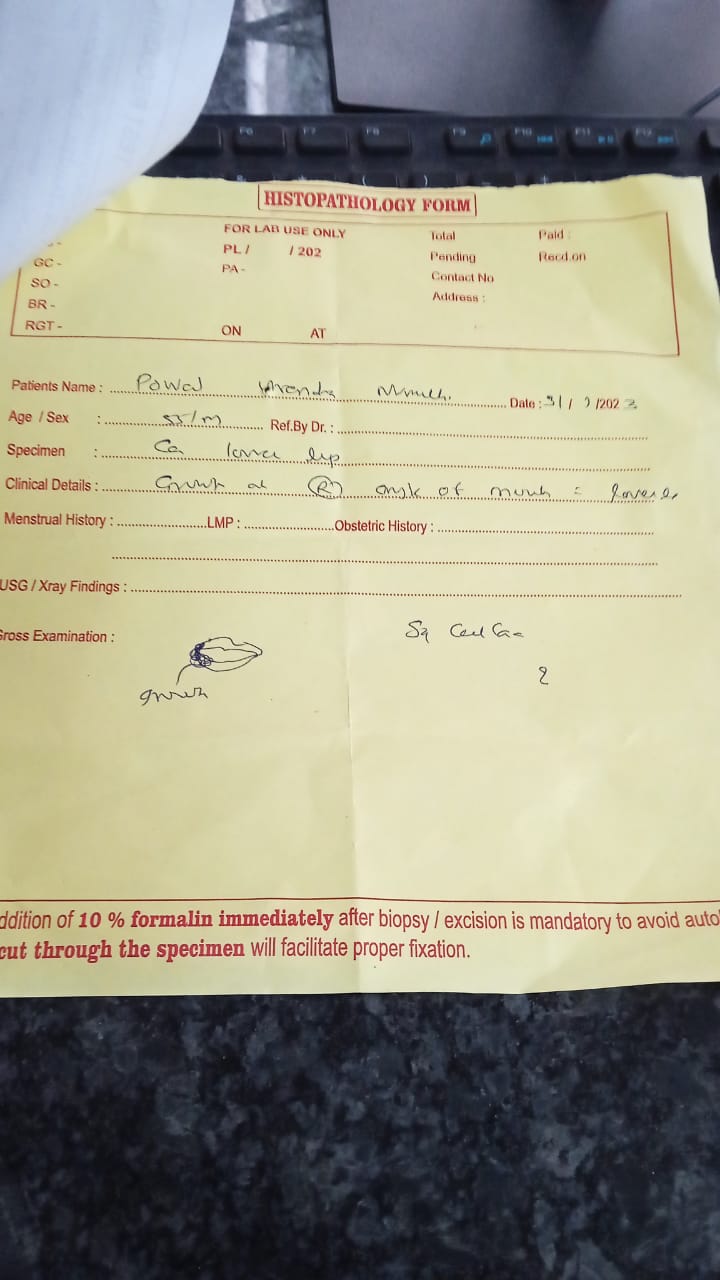 F6 F7 F8 F9 F10 F11 F12
HISTOPATHOLOGY FORM
FOR LAB USE ONLY Total Paid :
GC - PL / / 202 Pending Recd.on
SO - PA - Contact No
BR - Address :
RGT - ON AT
Patients Name : Date : 31 / /202 3
Age / Sex : 55/M Ref.By Dr. :
Specimen : Ca lower lip
Clinical Details : Growth at (R) angle of mouth =
Menstrual History : LMP : Obstetric History :
USG / Xray Findings :
Gross Examination : Sq Cell Ca
growth
ddition of 10 % formalin immediately after biopsy / excision is mandatory to avoid auto
cut through the specimen will facilitate proper fixation.